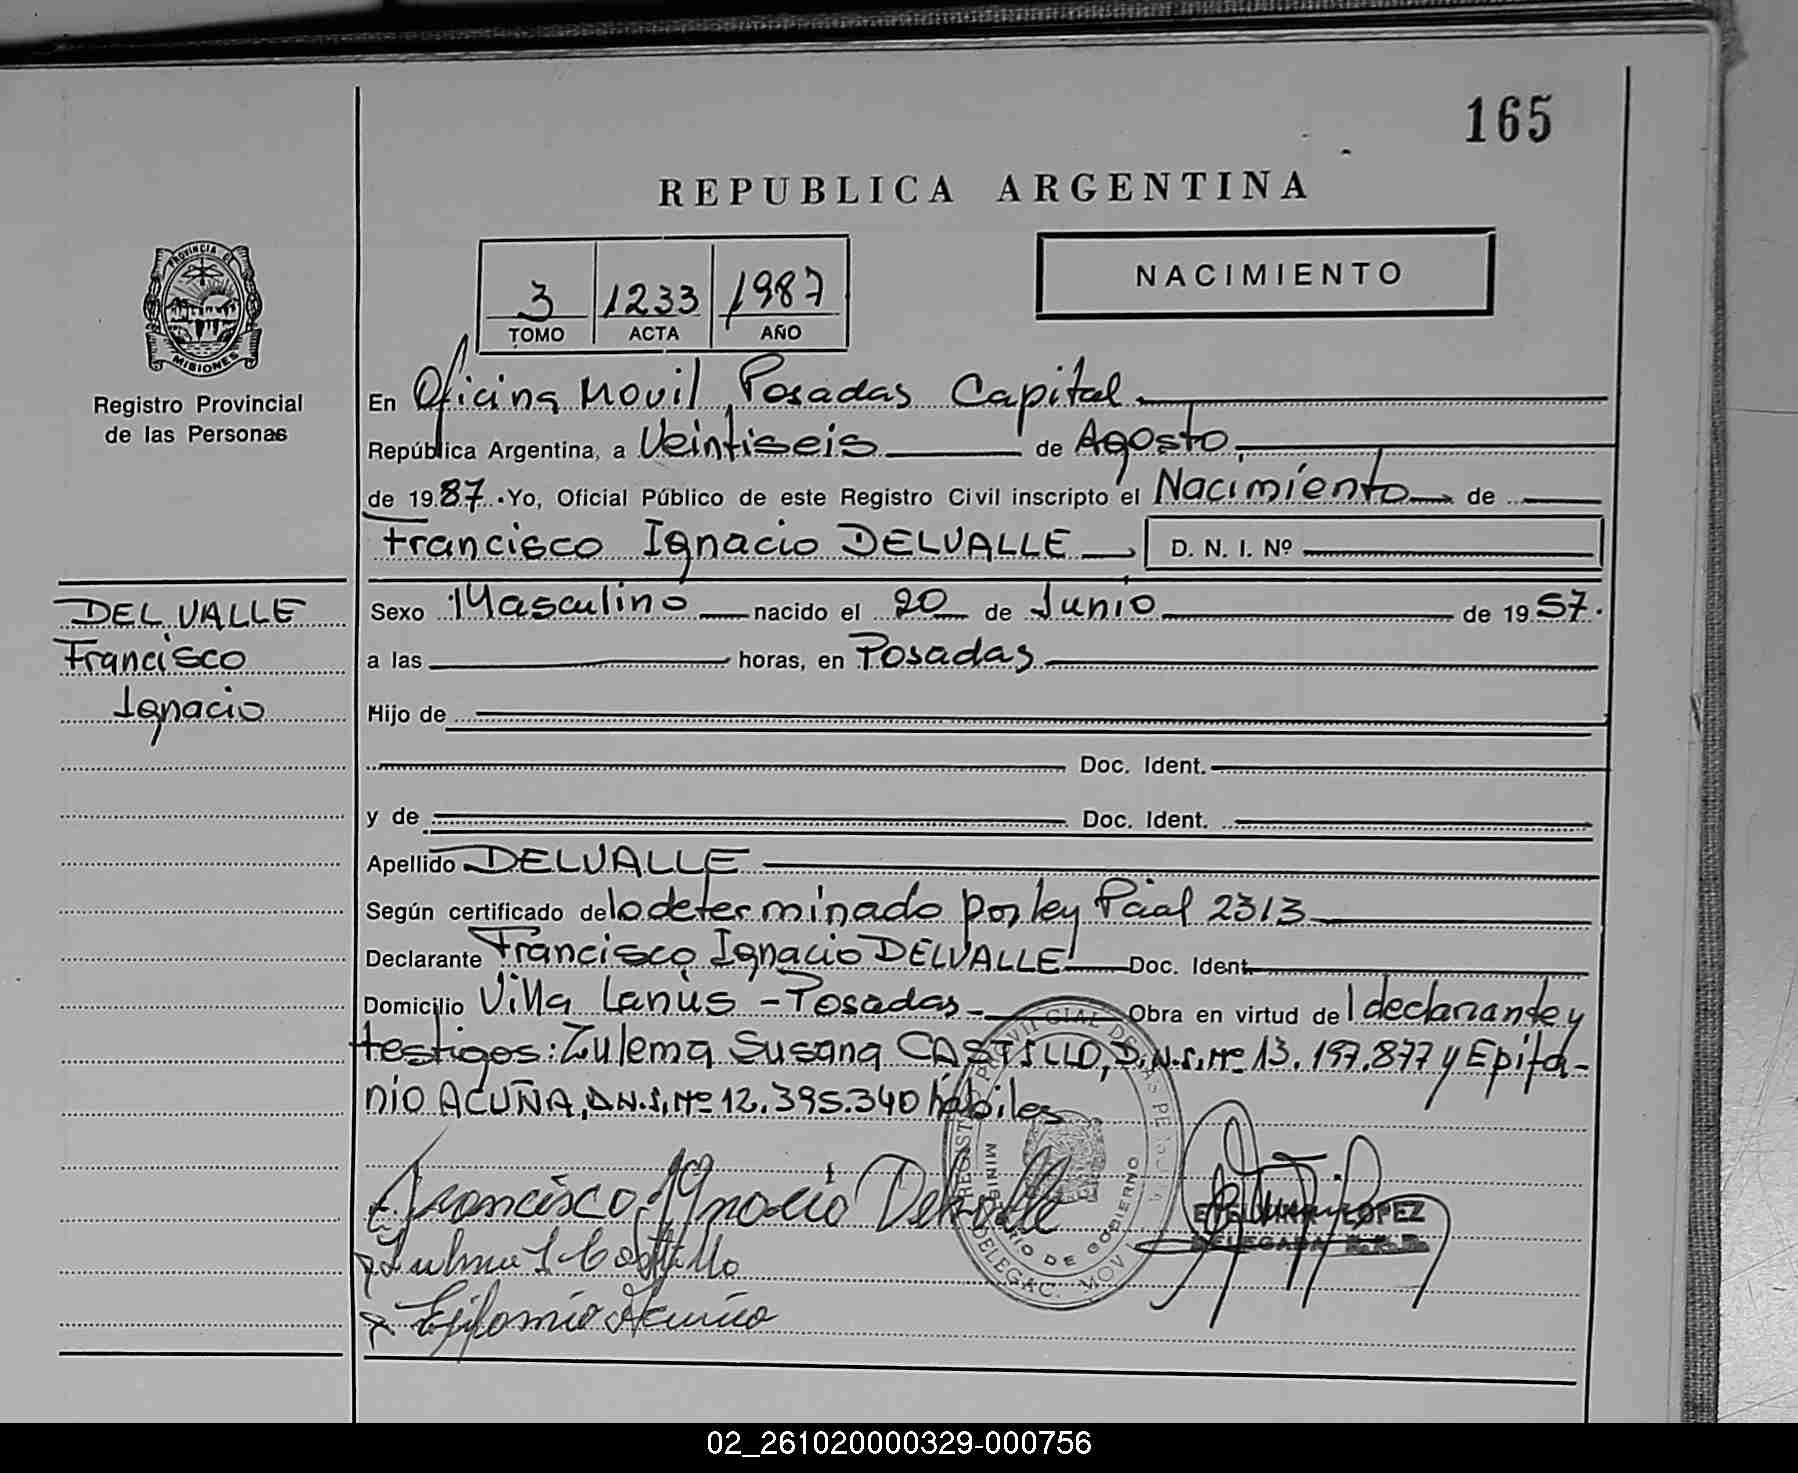 165
REPUBLICA ARGENTINA
3 1233 1987
TOMO ACTA AÑO
NACIMIENTO
PROVINCIA DE
MISIONES
Registro Provincial
de las Personas
En Oficina Movil, Posadas Capital
República Argentina, a Veintiseis de Agosto
de 1987. Yo, Oficial Público de este Registro Civil inscripto el Nacimiento de
Francisco Ignacio DELVALLE D. N. I. Nº
DELVALLE
Francisco
Ignacio
Sexo Masculino nacido el 20 de Junio de 1957.
a las horas, en Posadas
Hijo de
Doc. Ident.
y de Doc. Ident.
Apellido DELVALLE
Según certificado de lo determinado por ley Pcial 2313
Declarante Francisco Ignacio DELVALLE Doc. Ident.
Domicilio Villa Lanús - Posadas - Obra en virtud del declarante y
testigos: Zulema Susana CASTILLO, D.N.I. Nº 13.197.877 y Epifa-
nio ACUÑA, D.N.I. Nº 12.395.340 hábiles
Francisco Ignacio Delvalle
MINISTERIO DE GOBIERNO
LOPEZ
DELEGADA
02_261020000329-000756